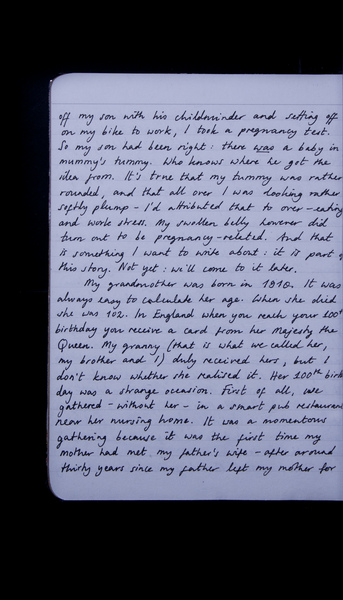 off my son with his childminder and setting off
on my bike to work, I took a pregnancy test.
So my son had been right: there was a baby in
mummy's tummy. Who knows where he got the
idea from. It's true that my tummy was rather
rounded, and that all over I was looking rather
softly plump - I'd attributed that to over-eating
and work stress. My swollen belly however did
turn out to be pregnancy-related. And that
is something I want to write about: it is part of
this story. Not yet: we'll come to it later.
My grandmother was born in 1910. It was
always easy to calculate her age. When she died
she was 102. In England when you reach your 100th
birthday you receive a card from her Majesty the
Queen. My granny (that is what we called her,
my brother and I) duly received hers, but I
don't know whether she realised it. Her 100th birth
day was a strange occasion. First of all, we
gathered - without her - in a smart pub restaurant
near her nursing home. It was a momentous
gathering because it was the first time my
mother had met my father's wife - after around
thirty years since my father left my mother for